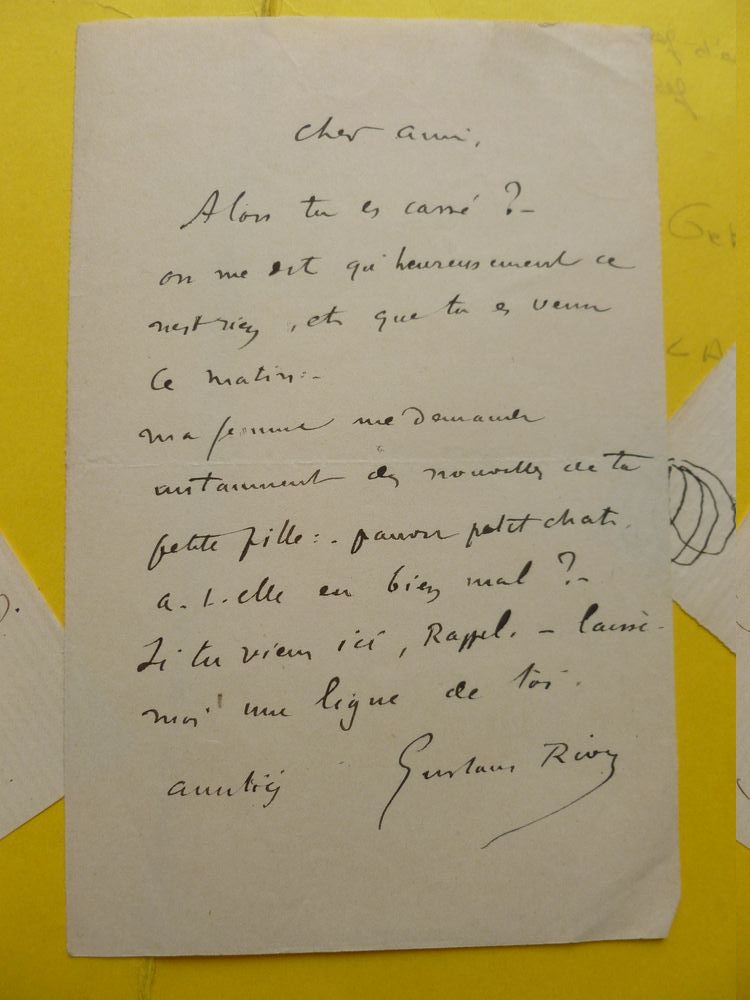 cher ami,
Alors tu es cassé ? -
on me dit qu'heureusement ce
n'est rien, et que tu es venu
ce matin. -
ma femme me demande
instamment des nouvelles de ta
petite fille : . pauvre petit chat.
a-t-elle eu bien mal ? -
Si tu viens ici, Rappel. - laisse-
moi une ligne de toi.
amitiés Gustave Rivet